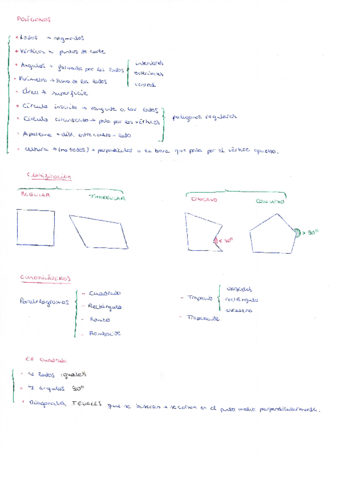 POLÍGONOS
• Lados → segmentos
• Vértices → puntos de corte
• Ángulos → formado por los lados
interiores
exteriores
• Perímetro → suma de los lados
• Área → superficie
• Círculo inscrito → tangente a los lados
• Círculo circunscrito → pasa por los vértices
polígonos regulares
• Apotema → dist. entre centro - lado
• Altura → (no todos) → perpendicular a la base que pasa por el vértice opuesto.
CLASIFICACIÓN
REGULAR
IRREGULAR
CÓNCAVO
CONVEXO
CUADRILÁTEROS
Paralelogramos
- Cuadrado
- Rectángulo
- Rombo
- Romboide
- Trapecio
isósceles
rectángulo
escaleno
- Trapezoide
EL CUADRADO
- 4 lados iguales
- 4 ángulos 90º
- Diagonales IGUALES que se bisecan → se cortan en el punto medio perpendicularmente.